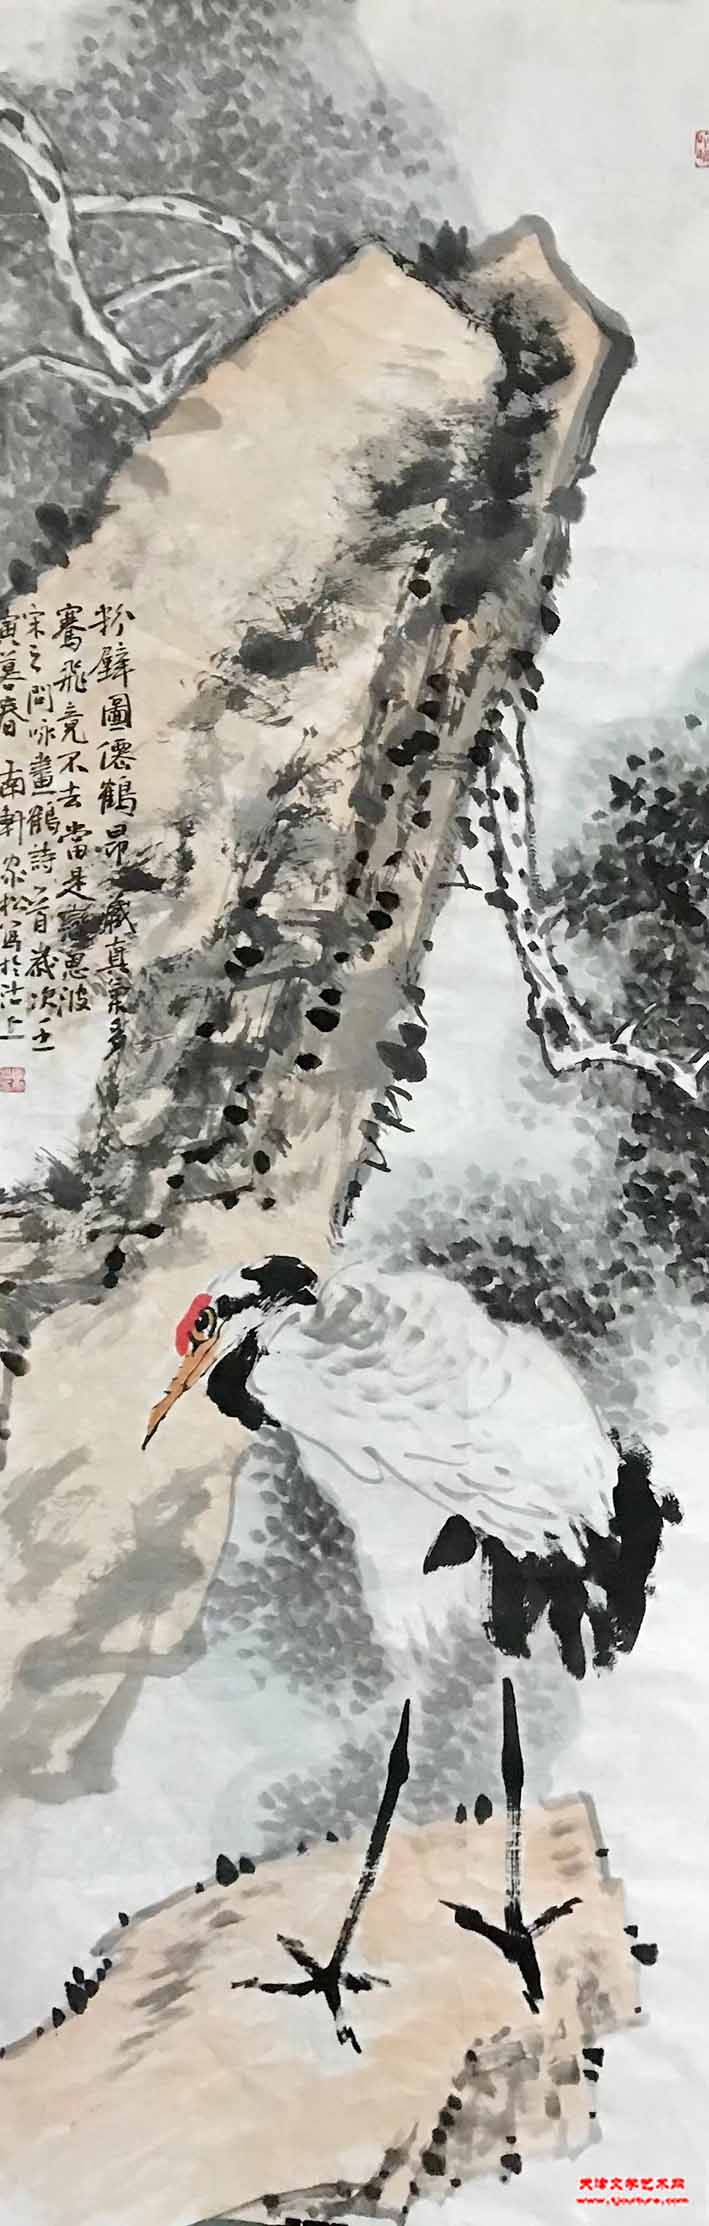 粉壁圖僊鶴昂藏真氣多
騫飛竟不去當是戀恩波
宋之問咏畫鶴詩一首歲次壬
寅暮春南軒家松寫於沽上
天津文学艺术网
www.tjculture.com